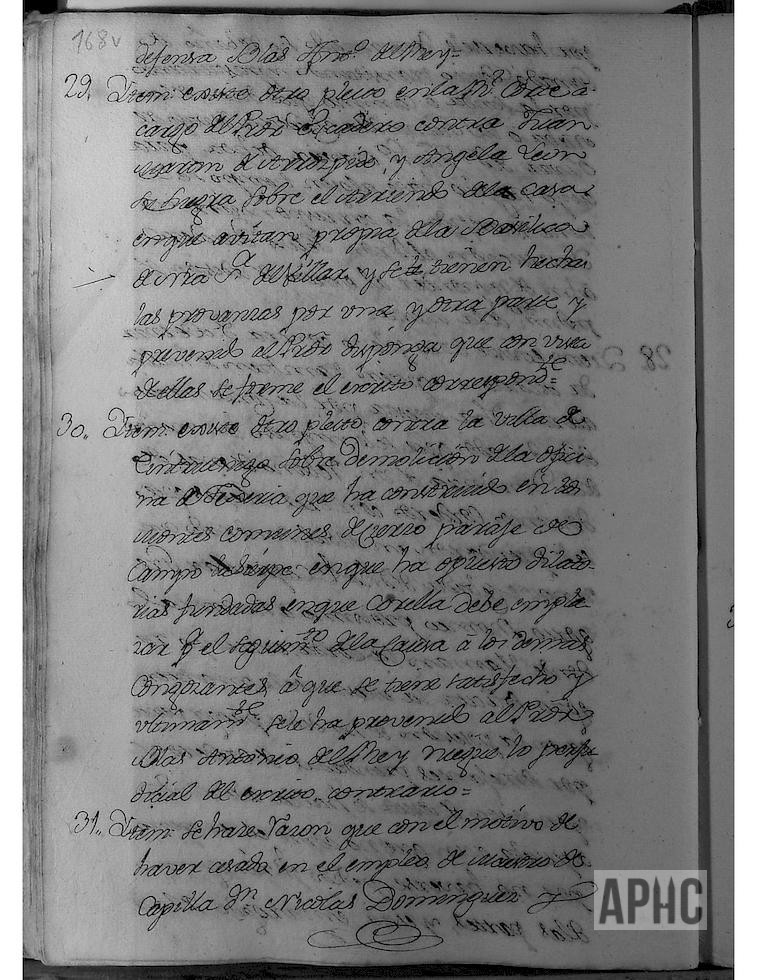 168v
defensa Blas Antº. del Rey=
29. Ittem existe otro pleito en la Rl. Corte a
cargo del Prôr Escudero contra Juan
Martin de y Angela Leon
sobre el Arriendo dela casa
enque avitan propia dela Basilica
de nra Sª. del Villar y se le tienen hecha
las provanzas por una y otra parte y
prevenido al Prôr disponga que con vista
de ellas se forme el escrito correspondte.=
30.. Ittem existe otro pleito contra la villa de
Cintruenigo sobre demolicion dela ofici-
na de Teneria que ha construido en los
montes comunes de Cierzo paraje de
Campo enque ha opuesto dilato-
rias fundadas enque Corella debe empla-
zar pª el seguimto. dela Causa â los demas
Congozantes, â que se tiene satisfecho y
ultimamte. se le ha prevenido al Prôr
Blas Antonio del Rey niegue lo perju-
dicial del escrito contrario=
31.. Ittem se hace razon que con el motivo de
haver cesado en el empleo de Maestro de
Capilla Dn. Nicolas Dominguez y
APHC